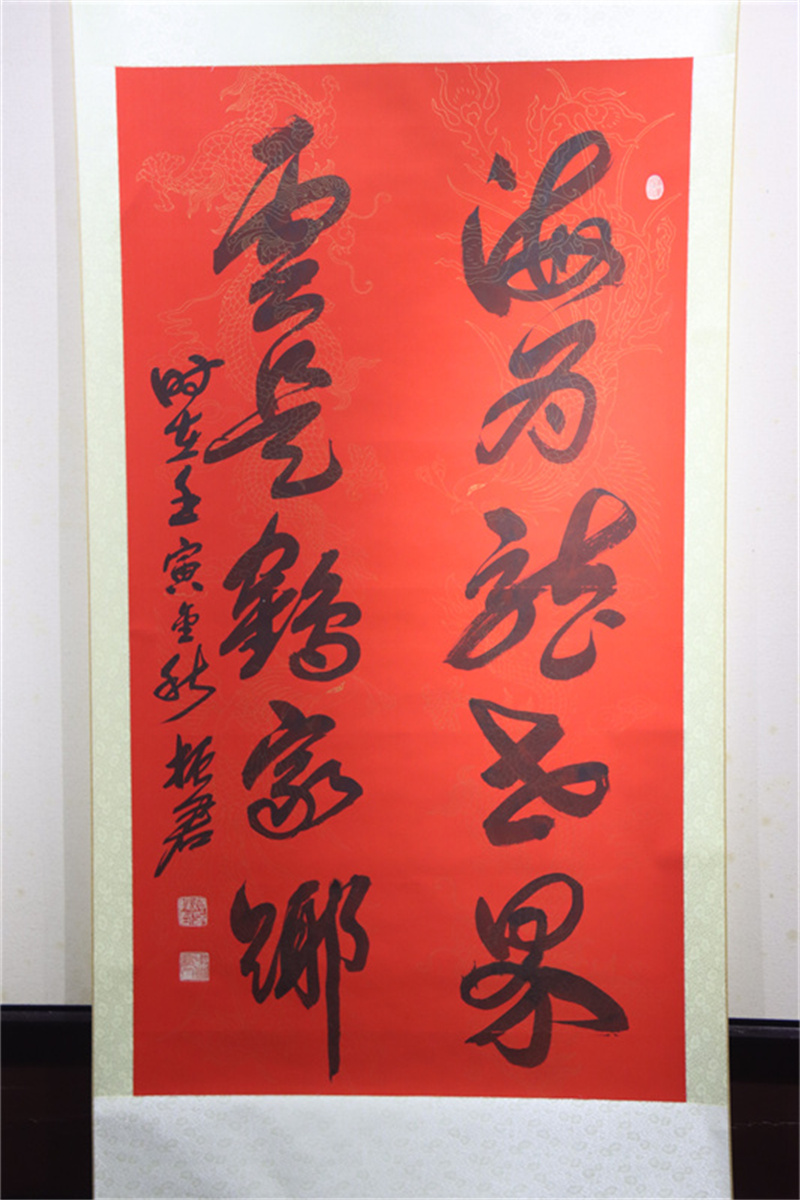 海为龙世界
雲是鶴家鄉
时在壬寅金秋 振君